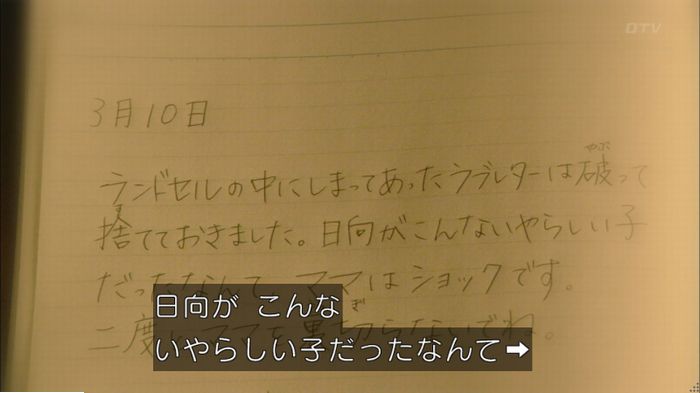 DTV
3月10日
やぶ
ランドセルの中にしまってあったラブレターは破って
す
捨てておきました。日向がこんないやらしい子
だったなんて、ママはショックです。
ぎ
二度とママを裏切らないでね。
日向が こんな
いやらしい子だったなんて➡